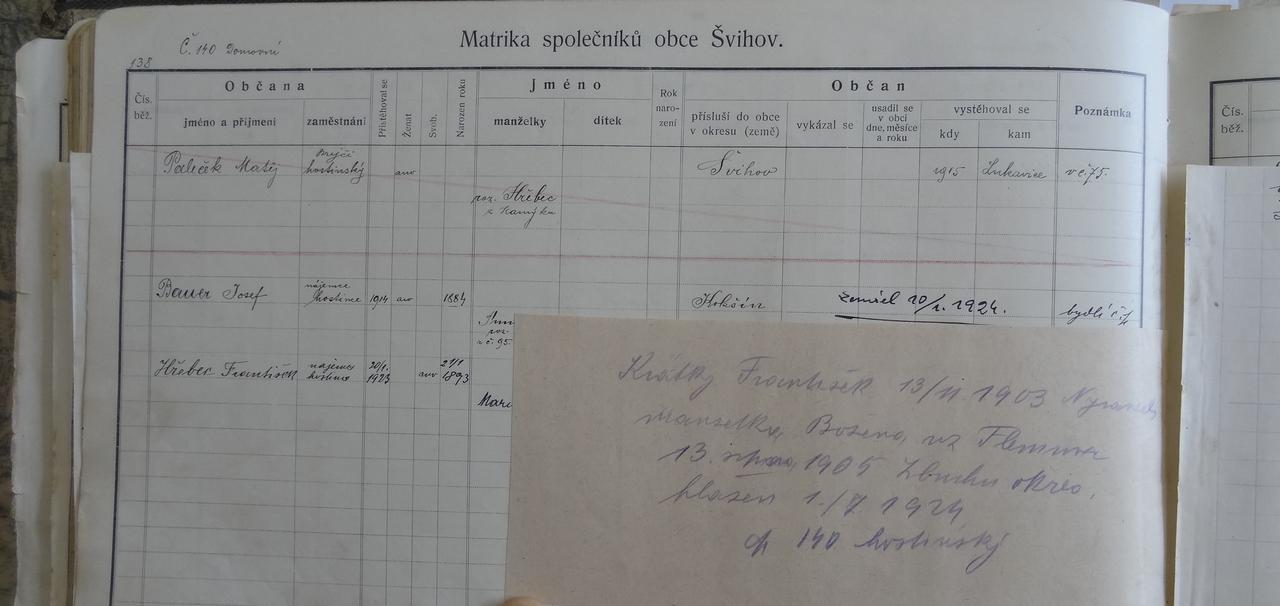 Č. 140 Domovní
Matrika společníků obce Švihov.
138
Občana
Jméno
Občan
Čís. běž.
jméno a příjmení
zaměstnání
Přistěhoval se
Ženat
Svob.
Narozen roku
manželky
dítek
Rok naro- zení
přísluší do obce v okresu (země)
vykázal se
usadil se v obci dne, měsíce a roku
vystěhoval se
kdy
kam
Poznámka
Čís. běž.
Paliček Matěj hostinský ano Švihov 1915 Lukavice v č. 75.
roz. Hřebec
z Kamýku
nájemce
Bauer Josef hostince 1914 ano 1884 zemřel 20/1. 1924. bydlí č.
roz.
z č. 95
Hřebec František nájemce hostince 20/1. 1923 ano 27/1 1893
Krátký František 13/11 1903
manželka Božena, roz
13. srpna, 1905 Zbuchu okres,
hlášen 1./7 1924
čp 140 hostinský